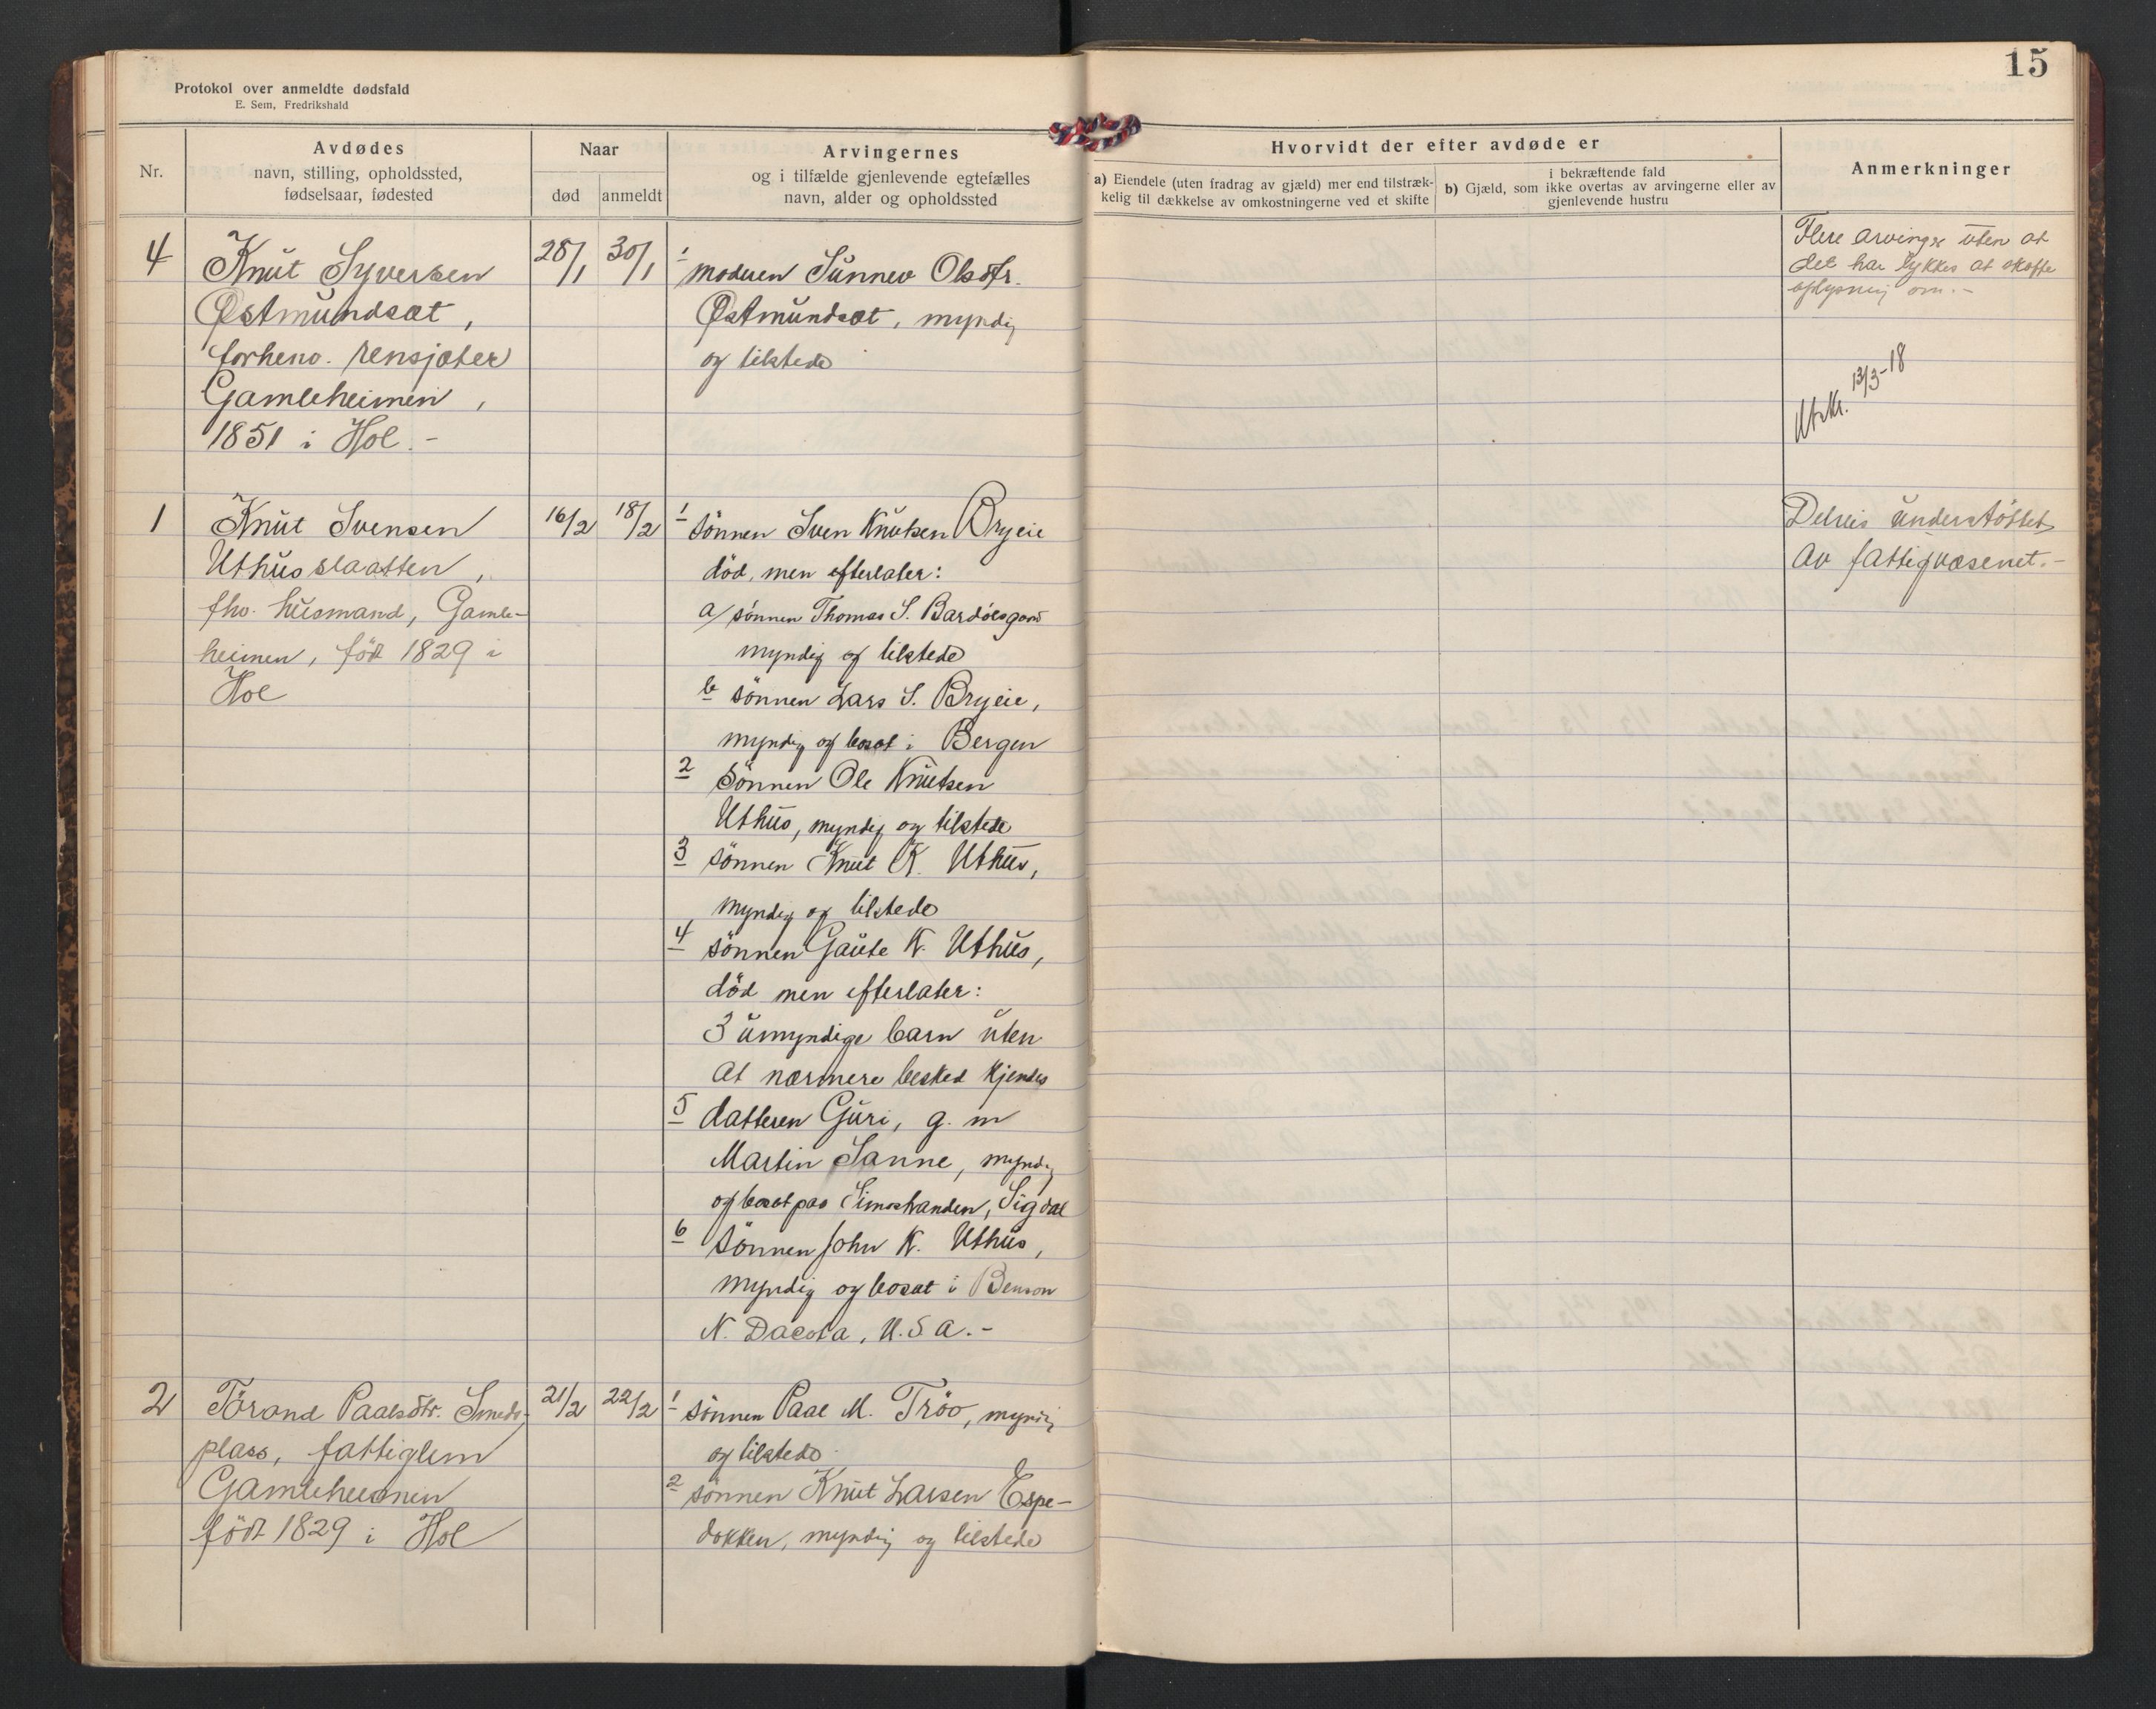 15
Protokol over anmeldte dødsfald
E. Sem, Fredrikshald
Nr.
Avdødes
navn, stilling, opholdssted,
fødselsaar, fødested
Naar
død
anmeldt
Arvingernes
og i tilfælde gjenlevende egtefælles
navn, alder og opholdssted
Hvorvidt der efter avdøde er
a) Eiendele (uten fradrag av gjæld) mer end tilstræk-
kelig til dækkelse av omkostningerne ved et skifte
i bekræftende fald
b) Gjæld, som ikke overtas av arvingerne eller av
gjenlevende hustru
Anmerkninger
4
Knut Syversen
Østmundsæt,
forhenv. rensjæter
Gamleheimen,
1851 i Hol.-
28/1
30/1
1
moderen Sunnev Olsdtr.
Østmundsæt, myndig
og tilstede
Flere arvinger uten at
det har lykkes at skaffe
oplysning om.-
Utskr. 13/3-18
1
Knut Svensen
Uthusslaatten,
fhv. husmand, Gamle-
heimen, født 1829 i
Hol
16/2
18/2
1
sönnen Sven Knutsen Bryeie
död, men efterlater:
a/ sönnen Thomas S. Bardölsgard
myndig og tilstede
b sönnen Lars S. Bryeie,
myndig og bosat i Bergen
2 Sönnen Ole Knutsen
Uthus, myndig og tilstede
3 sönnen Knut K. Uthus,
myndig og tilstede
4 sönnen Gaute K. Uthus,
död men efterlater:
3 umyndige barn uten
at nærmere besked kjendes
5 datteren Guri, g. m
Martin Sanne, myndig
og bosat paa Simostranden, Sigdal
6 Sönnen John K. Uthus,
myndig og bosat i Benson
N. Dacota, U.S.A.-
Delvis understöttet
av fattigvæsenet.-
2
Törand Paalsdtr. Smeds-
plass, fattiglem
Gamleheimen
född 1829 i Hol
21/2
22/2
1 sönnen Paal M. Tröo, myndig
og tilstede
2 sönnen Knut Larsen Espe-
dokken, myndig og tilstede